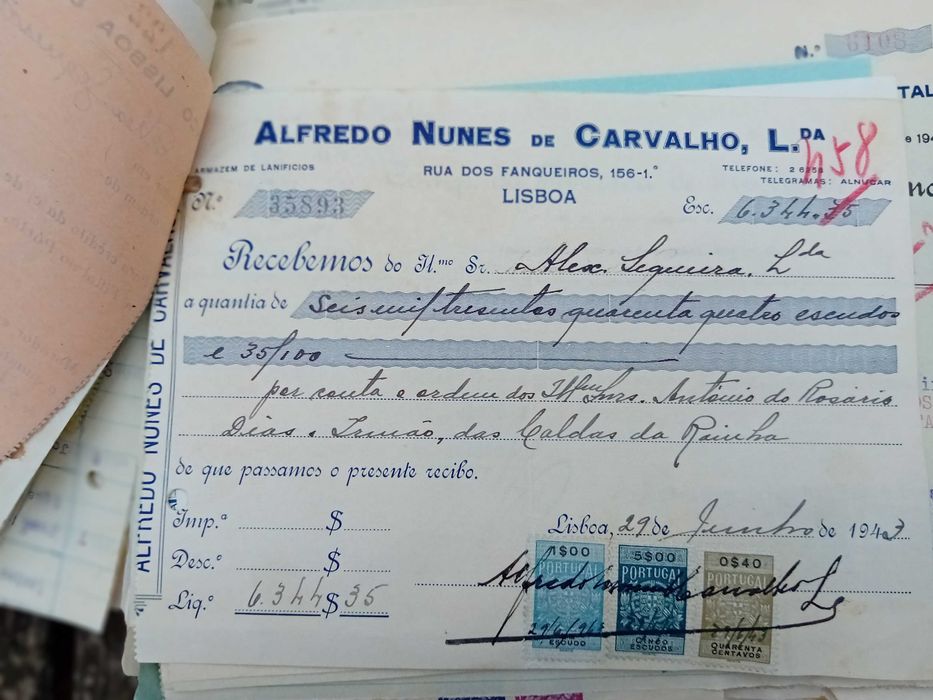 N.º 6108
ALFREDO NUNES DE CARVALHO, L.DA
458
ARMAZEM DE LANIFICIOS
RUA DOS FANQUEIROS, 156-1.º
LISBOA
TELEFONE: 2 6258
TELEGRAMAS: ALNUCAR
N.º 35893
Esc. 6.344.35
Recebemos do Il.mo Sr. Alex. Sequeira, Lda
a quantia de seis mil tresentos quarenta quatro escudos
e 35/100
por conta e ordem dos Ilmos Snrs. António do Rosário
Dias & Irmão, das Caldas da Rainha
de que passamos o presente recibo.
Imp.ª $
Desc.º $
Liq.º 6.344 $ 35
Lisboa, 29 de Junho de 1943
1$00 PORTUGAL ESCUDO
5$00 PORTUGAL CINCO ESCUDOS
0$40 PORTUGAL QUARENTA CENTAVOS
Alfredo Nunes Carvalho Lda
29/6/943
ALFREDO NUNES DE CARVALHO
LISBOA
TAL